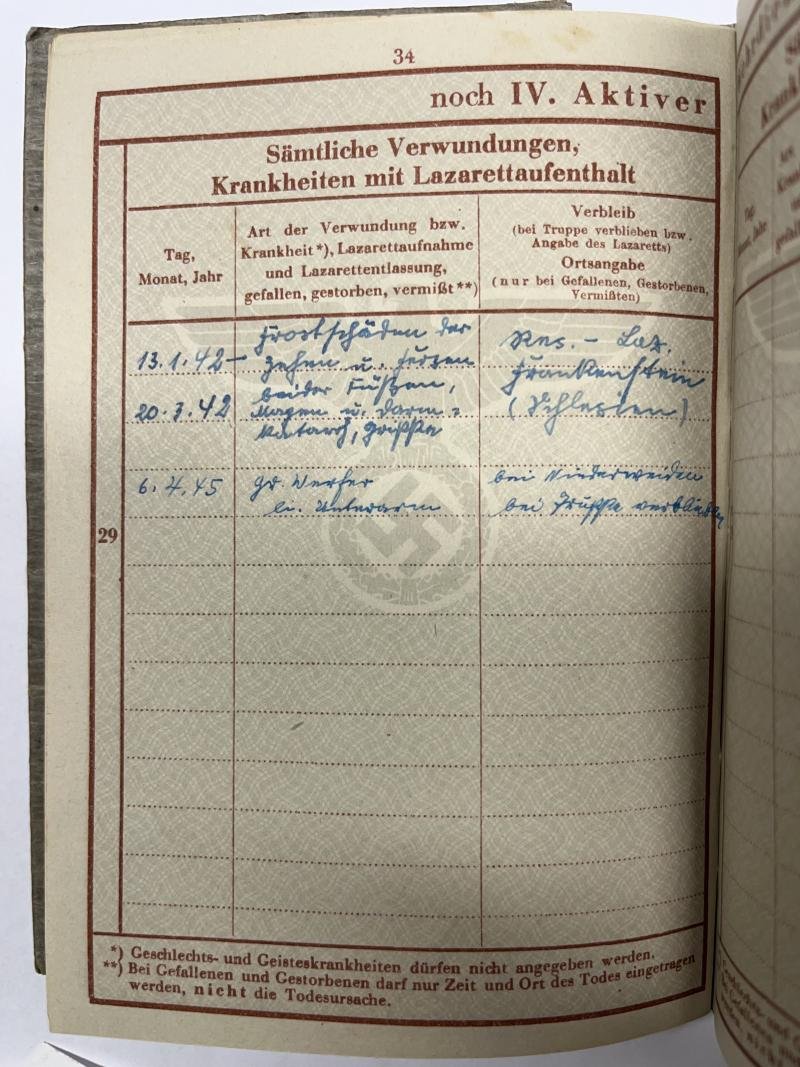 34
noch IV. Aktiver
Sämtliche Verwundungen,
Krankheiten mit Lazarettaufenthalt
Tag,
Monat, Jahr
Art der Verwundung bzw.
Krankheit*), Lazarettaufnahme
und Lazarettentlassung,
gefallen, gestorben, vermißt**)
Verbleib
(bei Truppe verblieben bzw.
Angabe des Lazaretts)
Ortsangabe
(nur bei Gefallenen, Gestorbenen,
Vermißten)
29
13.1.42 –
20.3.42
Frostschäden der
Zehen u. Fersen
beider Füßen,
Magen u. Darm-
katarrh, Grippe
Res. - Laz.
Frankenstein
(Schlesien)
6.4.45
Gr. Werfer
li. Unterarm
bei Niederweiden
bei Truppe verblieben
*) Geschlechts- und Geisteskrankheiten dürfen nicht angegeben werden.
**) Bei Gefallenen und Gestorbenen darf nur Zeit und Ort des Todes eingetragen
werden, nicht die Todesursache.